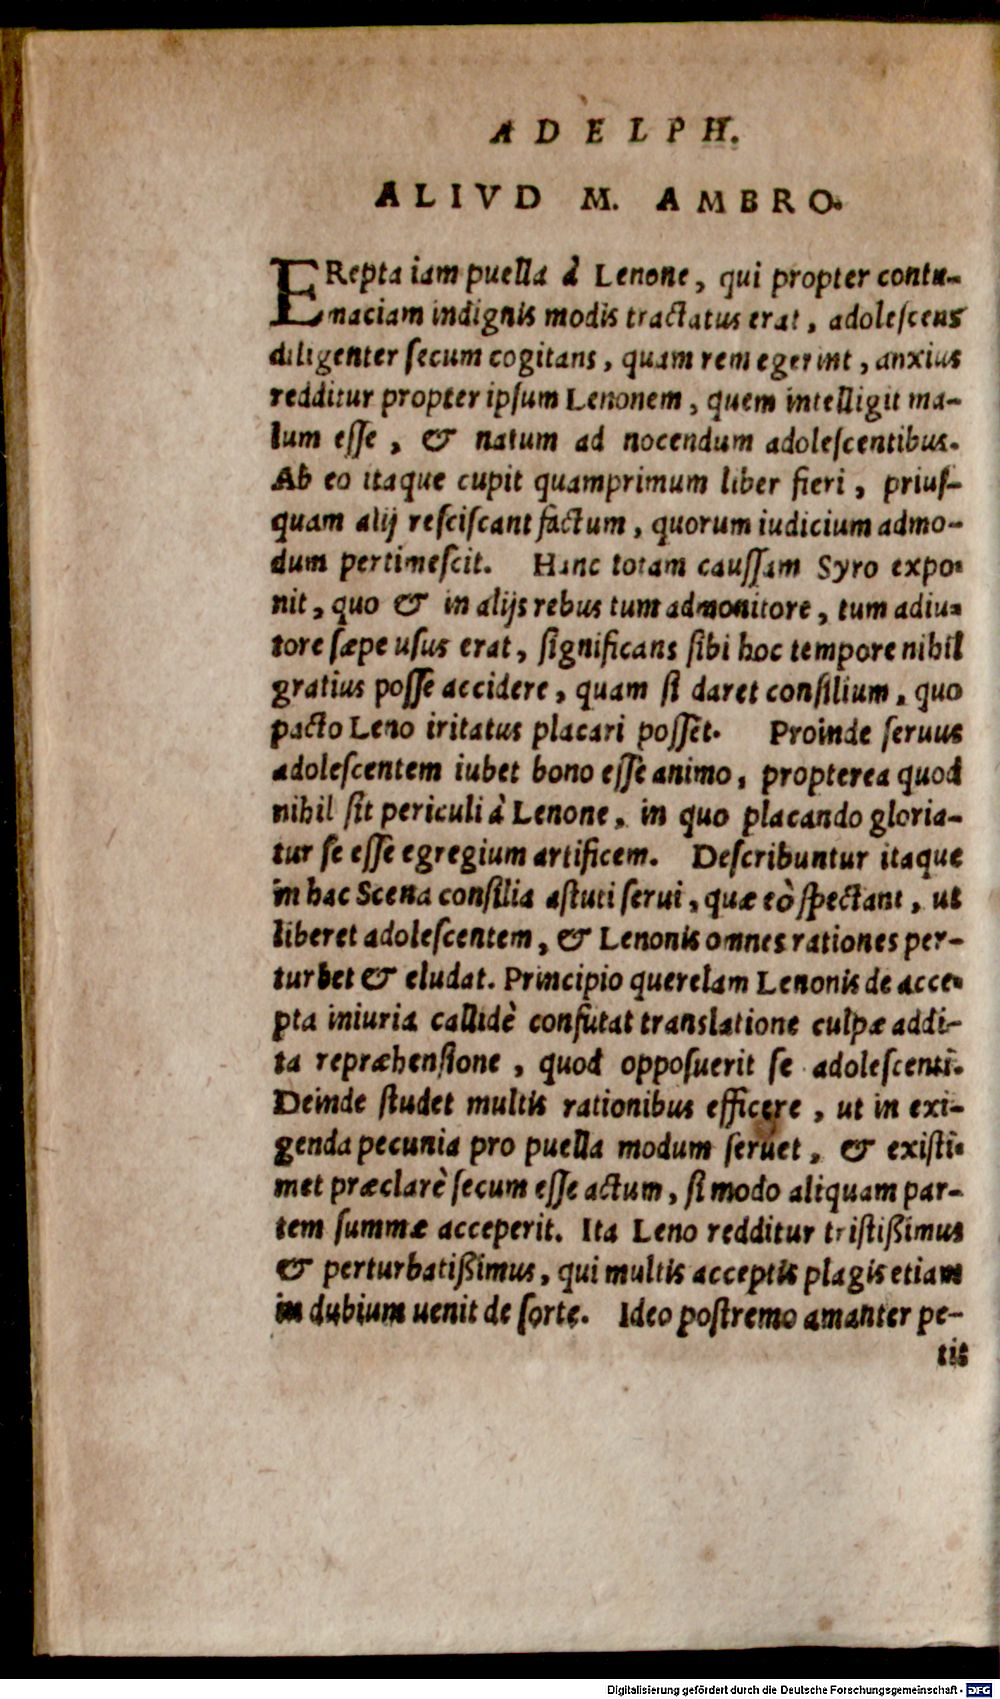 ADELPH.
ALIVD M. AMBRO.
ERepta iam puella à Lenone, qui propter contu-
maciam indignis modis tractatus erat, adolescens
diligenter secum cogitans, quam rem egerint, anxius
redditur propter ipsum Lenonem, quem intelligit ma-
lum esse, & natum ad nocendum adolescentibus.
Ab eo itaque cupit quamprimum liber fieri, prius-
quam alij resciscant factum, quorum iudicium admo-
dum pertimescit. Hanc totam caussam Syro expo-
nit, quo & in alijs rebus tum admonitore, tum adiu-
tore sæpe usus erat, significans sibi hoc tempore nihil
gratius posse accidere, quam si daret consilium, quo
pacto Leno iritatus placari posset. Proinde seruus
adolescentem iubet bono esse animo, propterea quod
nihil sit periculi à Lenone, in quo placando gloria-
tur se esse egregium artificem. Describuntur itaque
in hac Scena consilia astuti serui, quæ eò spectant, ut
liberet adolescentem, & Lenonis omnes rationes per-
turbet & eludat. Principio querelam Lenonis de acce-
pta iniuria callidè confutat translatione culpæ addi-
ta repræhensione, quod opposuerit se adolescenti.
Deinde studet multis rationibus efficere, ut in exi-
genda pecunia pro puella modum seruet, & existi-
met præclarè secum esse actum, si modo aliquam par-
tem summæ acceperit. Ita Leno redditur tristißimus
& perturbatißimus, qui multis acceptis plagis etiam
in dubium uenit de sorte. Ideo postremo amanter pe-
tit
Digitalisierung gefördert durch die Deutsche Forschungsgemeinschaft - DFG